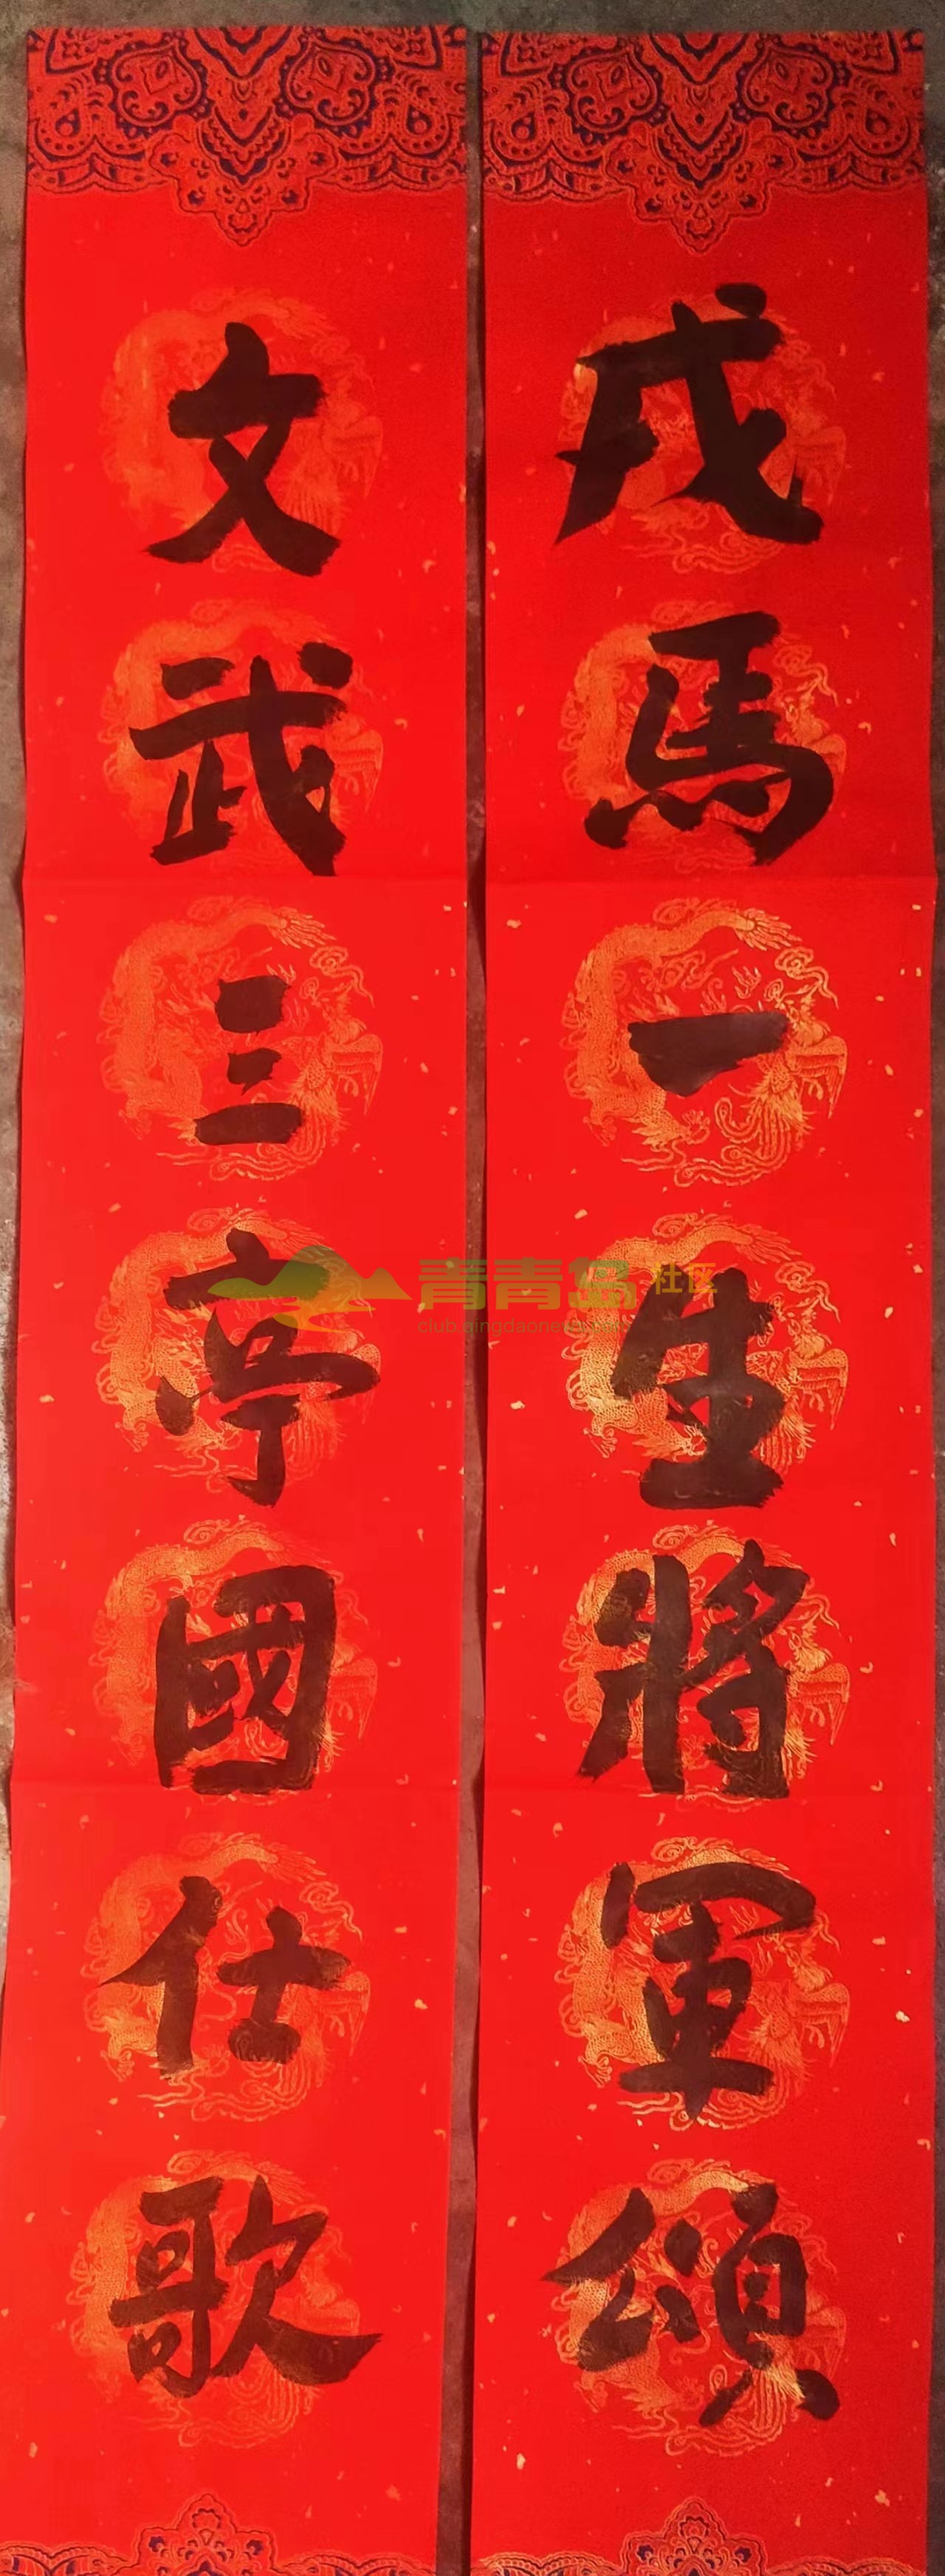 戎馬一生將軍頌
文武三亭國仕歌
青青岛 社区
club.qingdaonews.com